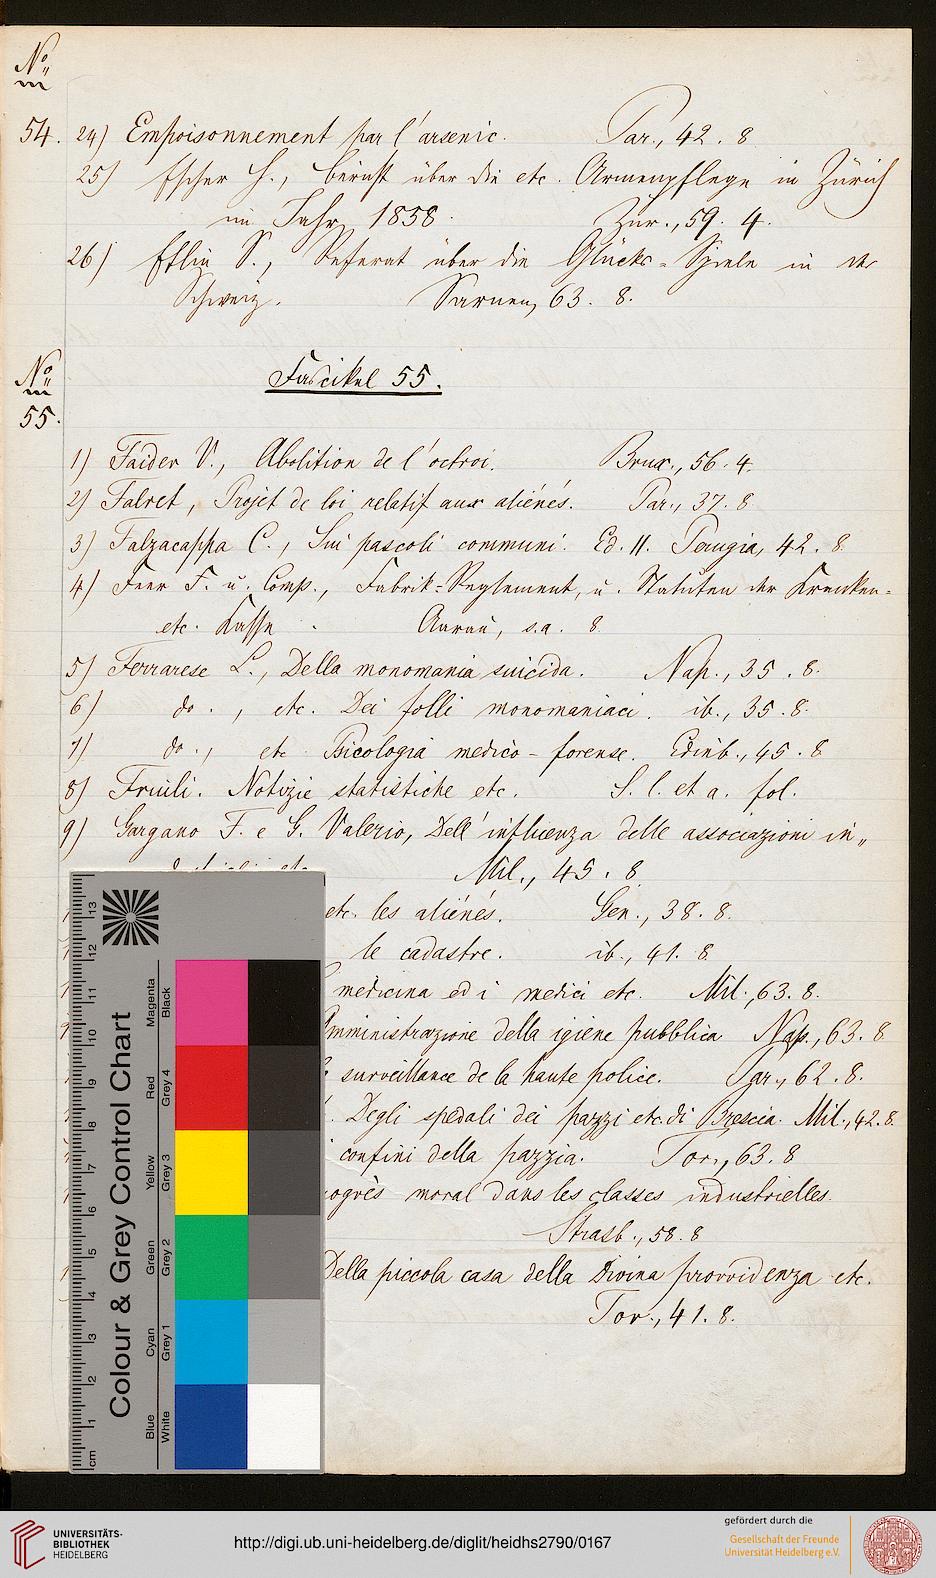 No
54. 24) Empoisonnement par l'arsenic. Par., 42. 8
25) Escher H., Bericht über die etc. Armenpflege in Zürich
im Jahr 1858. Zür., 59. 4.
26) Ettlin S., Referat über die Glücks-Spiele in der
Schweiz. Sarnen, 63. 8.
No
55.
Fascikel 55.
1) Faider V., Abolition de l'octroi. Brux., 56. 4.
2) Falret, Projet de loi relatif aux aliénés. Par., 37. 8
3) Falzacappa C., Sui pascoli communi. Ed. II. Perugia, 42. 8.
4) Feer F. u. Comp., Fabrik-Reglement, u. Statuten der Kranken-
etc. Kasse. Aarau, s.a. 8.
5) Ferrarese L., Della monomania suicida. Nap., 35. 8.
6) do., etc. Dei folli monomaniaci. ib., 35. 8.
7) do., etc. Psicologia medico-forense. Edinb., 45. 8
8) Friuli. Notizie statistiche etc. S. l. et a. fol.
9) Gargano F. e G. Valerio, Dell'influenza delle associazioni in„
Mil., 45. 8.
etc. les aliénés. Gen., 38. 8.
le cadastre. ib., 41. 8.
medicina ed i medici etc. Mil., 63. 8.
mministrazione della igiene pubblica Nap., 63. 8
surveillance de la haute police. Par., 62. 8.
. Degli spedali dei pazzi etc. di Brescia. Mil., 42. 8.
confini della pazzia. Tor., 63. 8
ogrès moral dans les classes industrielles.
Strasb., 58. 8
Della piccola casa della Divina provvidenza etc.
Tor., 41. 8.
Colour & Grey Control Chart
Blue Cyan Green Yellow Red Magenta
White Grey 1 Grey 2 Grey 3 Grey 4 Black
cm 1 2 3 4 5 6 7 8 9 10 11 12 13
UNIVERSITÄTS-
BIBLIOTHEK
HEIDELBERG
http://digi.ub.uni-heidelberg.de/diglit/heidhs2790/0167
gefördert durch die
Gesellschaft der Freunde
Universität Heidelberg e.V.